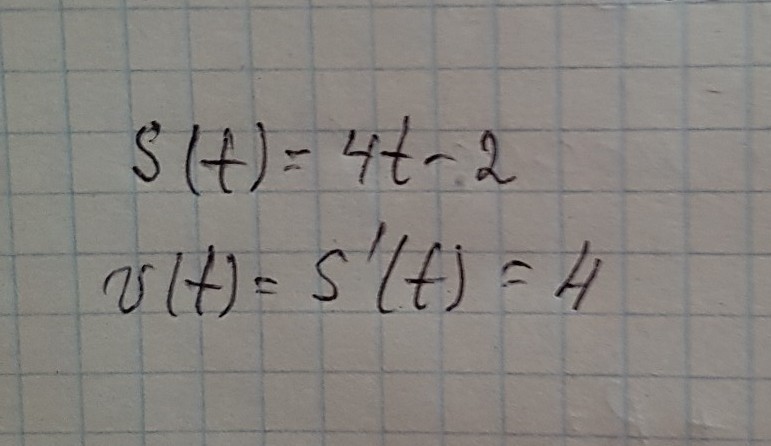 S(t) = 4t - 2
v(t) = S'(t) = 4